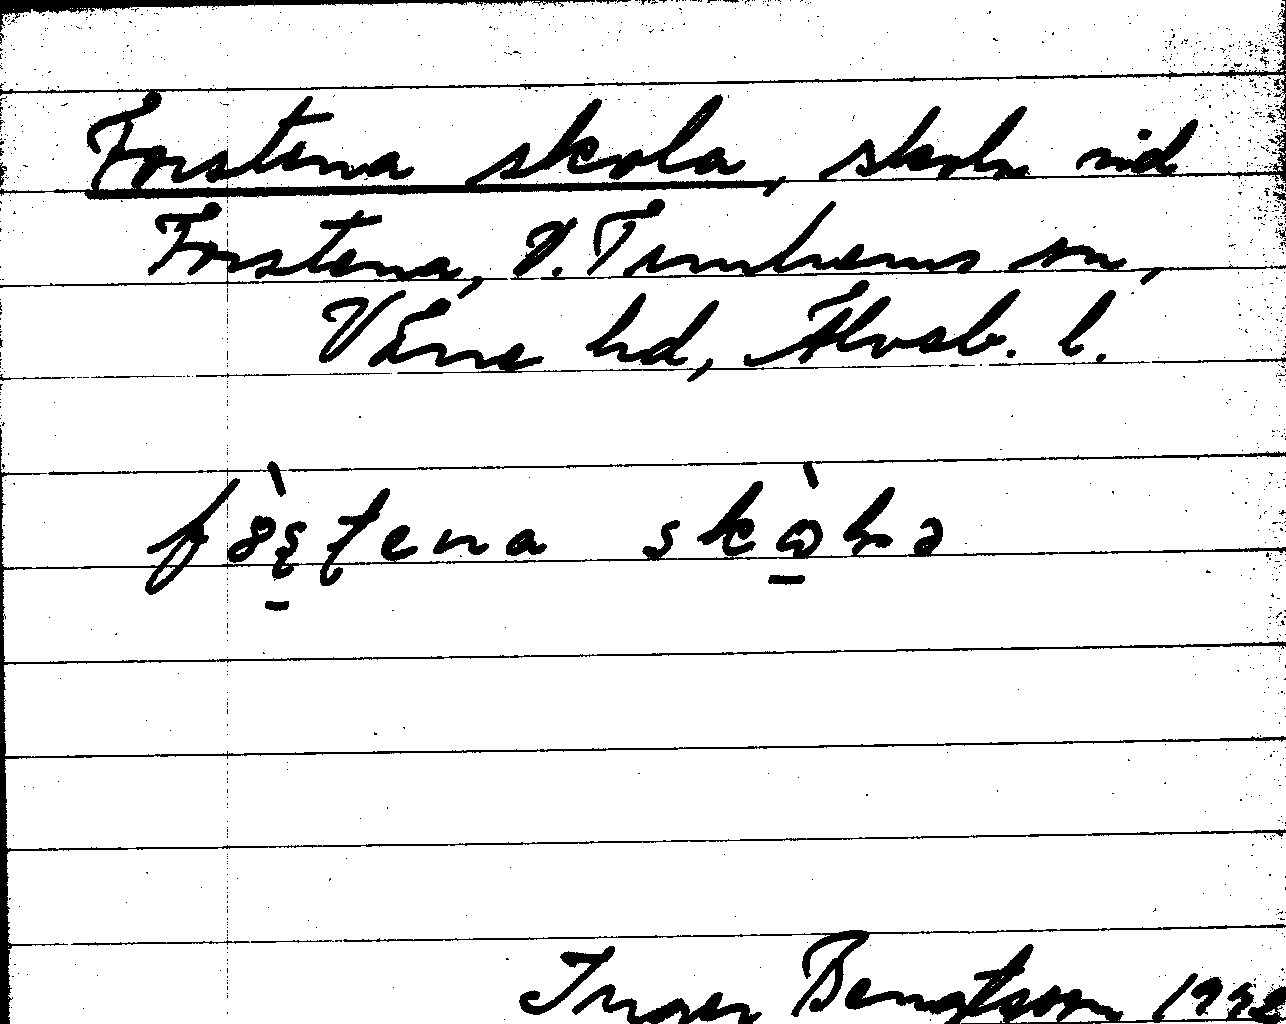 Forstena skola, skola vid
Forstena, V. Tunhems sn,
Väne hd, Älvsb. l.
skola
Inger Bengtsson 1992